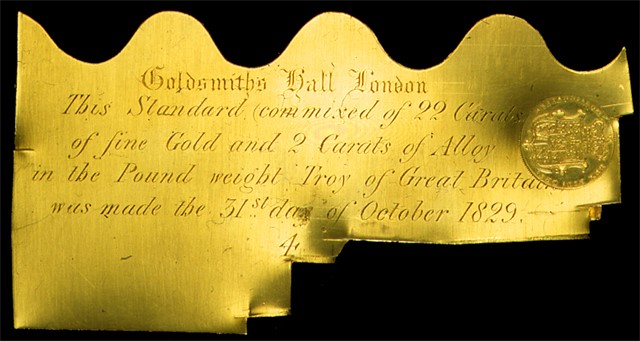 Goldsmiths Hall London
This Standard commixed of 22 Carats
of fine Gold and 2 Carats of Alloy
in the Pound weight Troy of Great Britain
was made the 31st day of October 1829.
4.